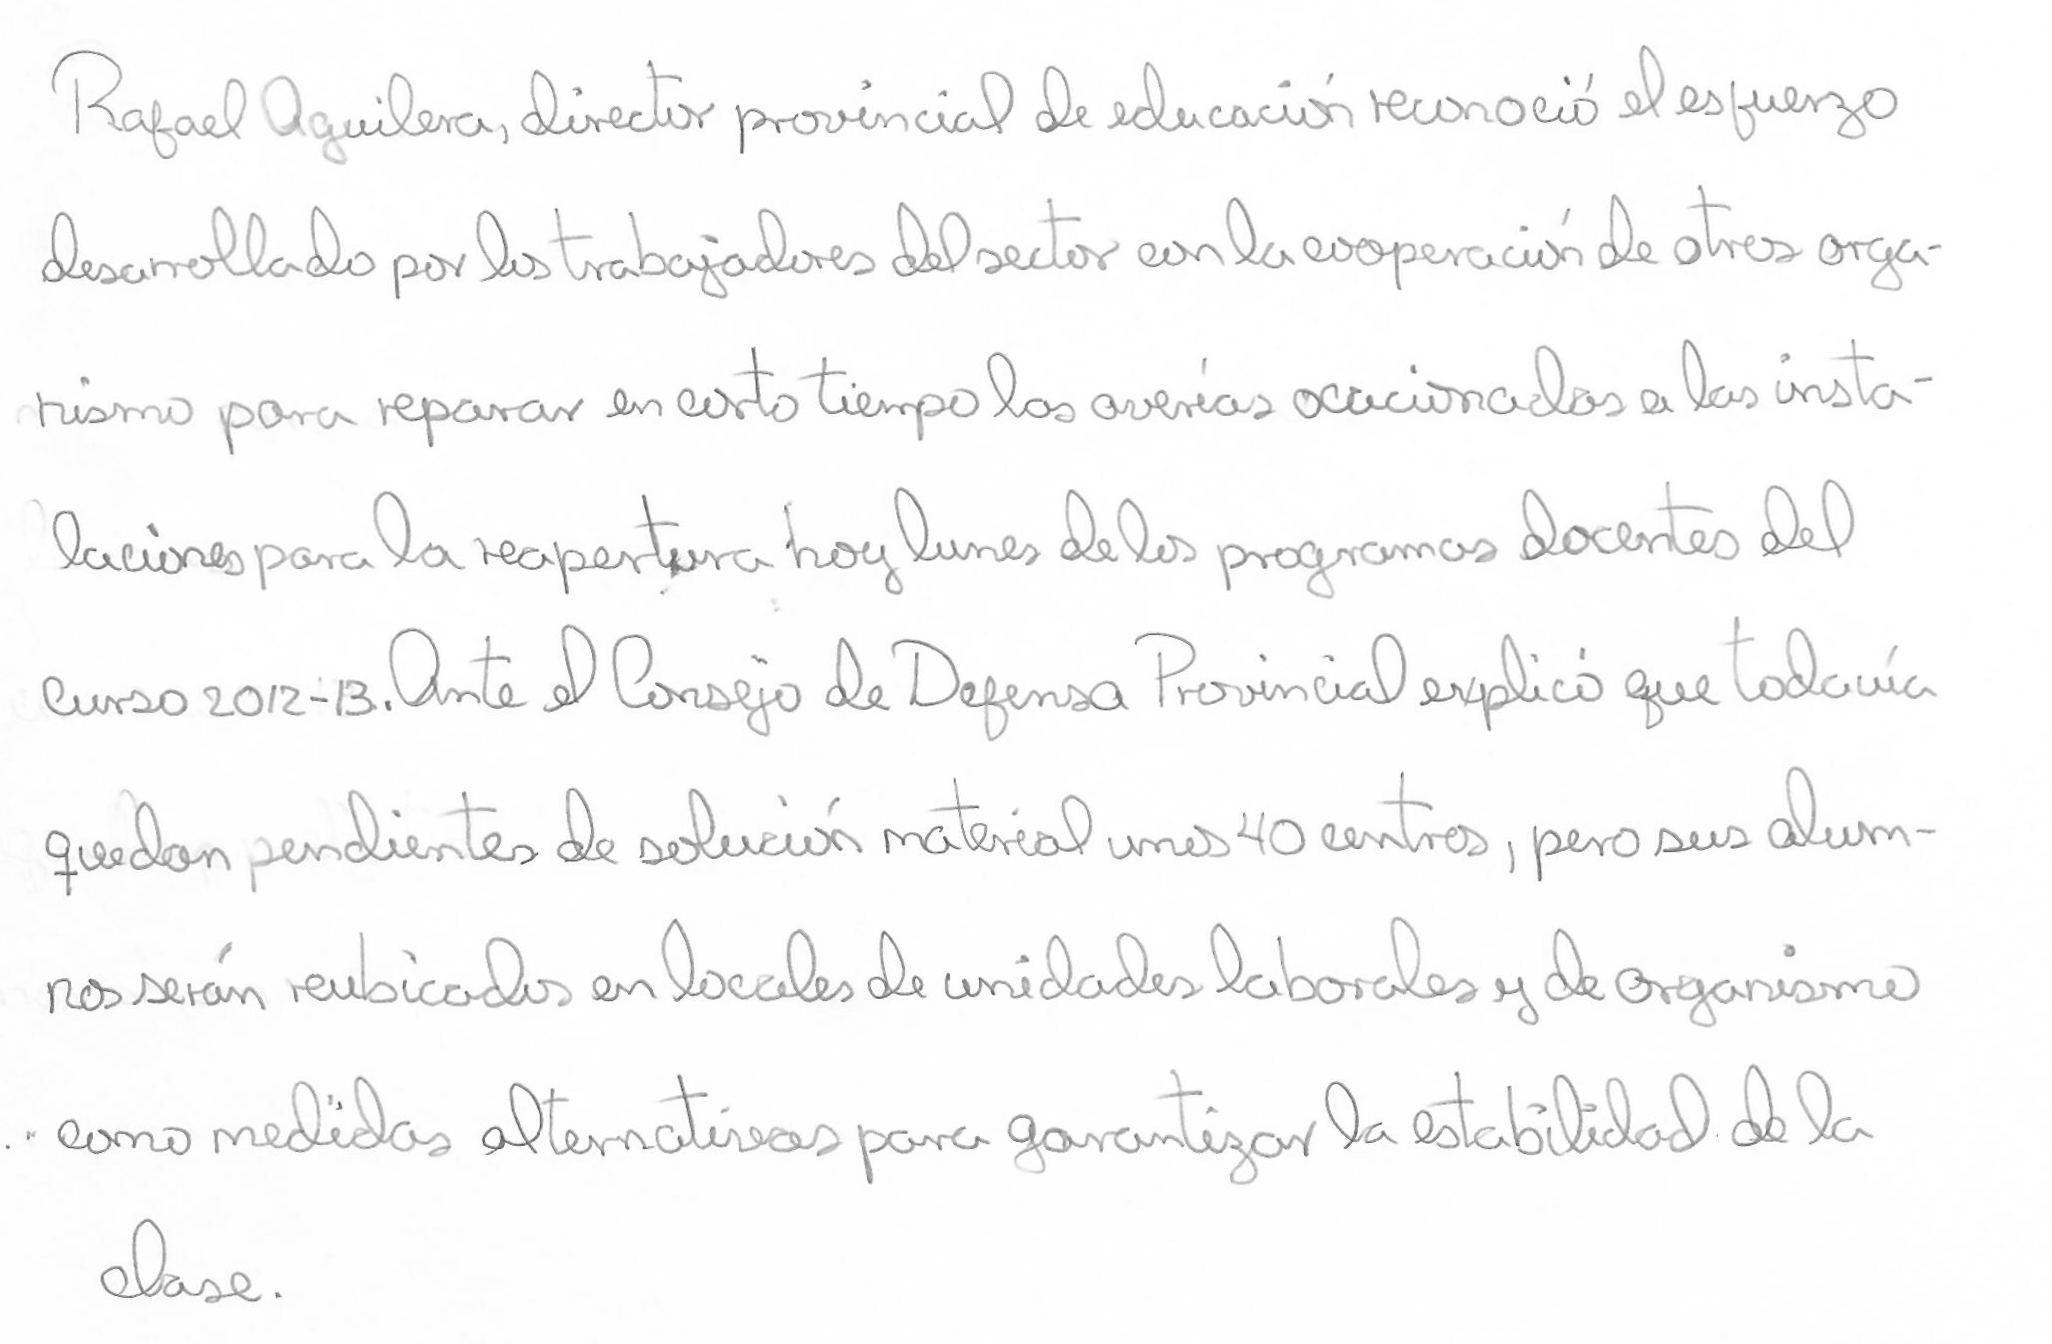 Rafael Aguilera, director provincial de educación reconoció el esfuerzo
desarrollado por los trabajadores del sector con la cooperación de otros orga-
nismo para reparar en corto tiempo las averías ocacionadas a las insta-
laciones para la reapertura hoy lunes de los programas docentes del
curso 2012-13. Ante el Consejo de Defensa Provincial explicó que todavía
quedan pendientes de solución material unos 40 centros, pero sus alum-
nos serán reubicados en locales de unidades laborales y de organismo
como medidas alternativas para garantizar la estabilidad de la
clase.